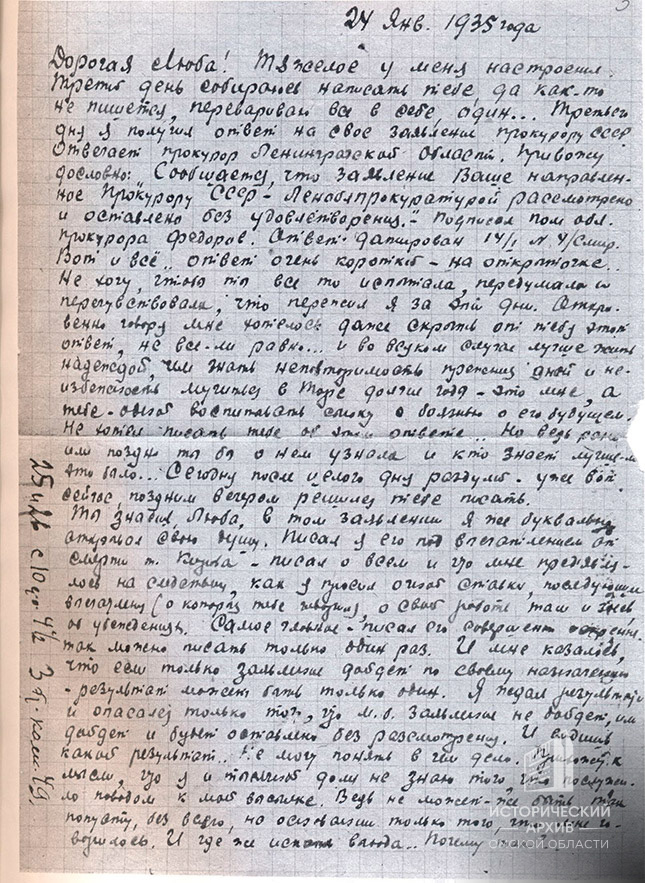 24 Янв. 1935 года
Дорогая Люба! Тяжелое у меня настроение.
Третий день собираюсь написать тебе да как-то
не пишется, перевариваю все в себе, один... Третьего
дня я получил ответ на свое заявление прокурору СССР.
Отвечает прокурор Ленинградской области. Привожу
дословно: "Сообщается, что заявление Ваше направлен-
ное Прокурору СССР - Леноблпрокуратурой рассмотрено
и оставлено без удовлетворения." - Подписал пом. обл.
прокурора Федоров. Ответ датирован 14/I N 4/спир.
Вот и всё, ответ очень короткий - на открыточке..
Не хочу, чтобы ты все то испытала, передумала и
перечувствовала, что пережил я за эти дни. Откро-
венно говоря мне хотелось даже скрыть от тебя этот
ответ, не все-ли равно... и во всяком случае лучше жить
надеждой, чем знать неповторимость прежних дней и не-
избежность мучиться в Торе долгие года - это мне, а
тебе - одной воспитывать сынку с боязнью о его будущем.
Не хотел писать тебе об этом ответе... Но ведь рано
или поздно ты бы о нем узнала и кто знает лучше-ли
это было... Сегодня после целого дня раздумий - уже вот
сейчас, поздним вечером решился тебе писать.
Ты знаешь, Люба, в том заявлении я же буквально
открывал свою душу. Писал я его под впечатлением от
смерти т. Кирова - писал о всем и что мне предъявля-
лось на следствии, как я просил очной ставки, последующих
впечатлениях (о которых тебе говорил), о своей работе там и здесь,
об убеждениях. Самое главное - писал его совершенно искренне,
так можно писать только один раз. И мне казалось,
что если только заявление дойдет по своему назначению
- результат может быть только один. Я ждал результата
и опасался только того, что м.б. заявление не дойдет, или
дойдет и будет оставлено без рассмотрения. И видишь
какой результат.. Не могу понять в чем дело. Прихожу к
мысли, что я и должно не знаю того, что послужи-
ло поводом к моей высылке. Ведь не может-же быть так
попусту, без всего, на основании только того, что мне го-
ворилось. И где же искать выхода.. Почему
25 и 26 с 10 до 4½ 3 эт. ком. 49.
ИСТОРИЧЕСКИЙ
АРХИВ
ОМСКОЙ ОБЛАСТИ